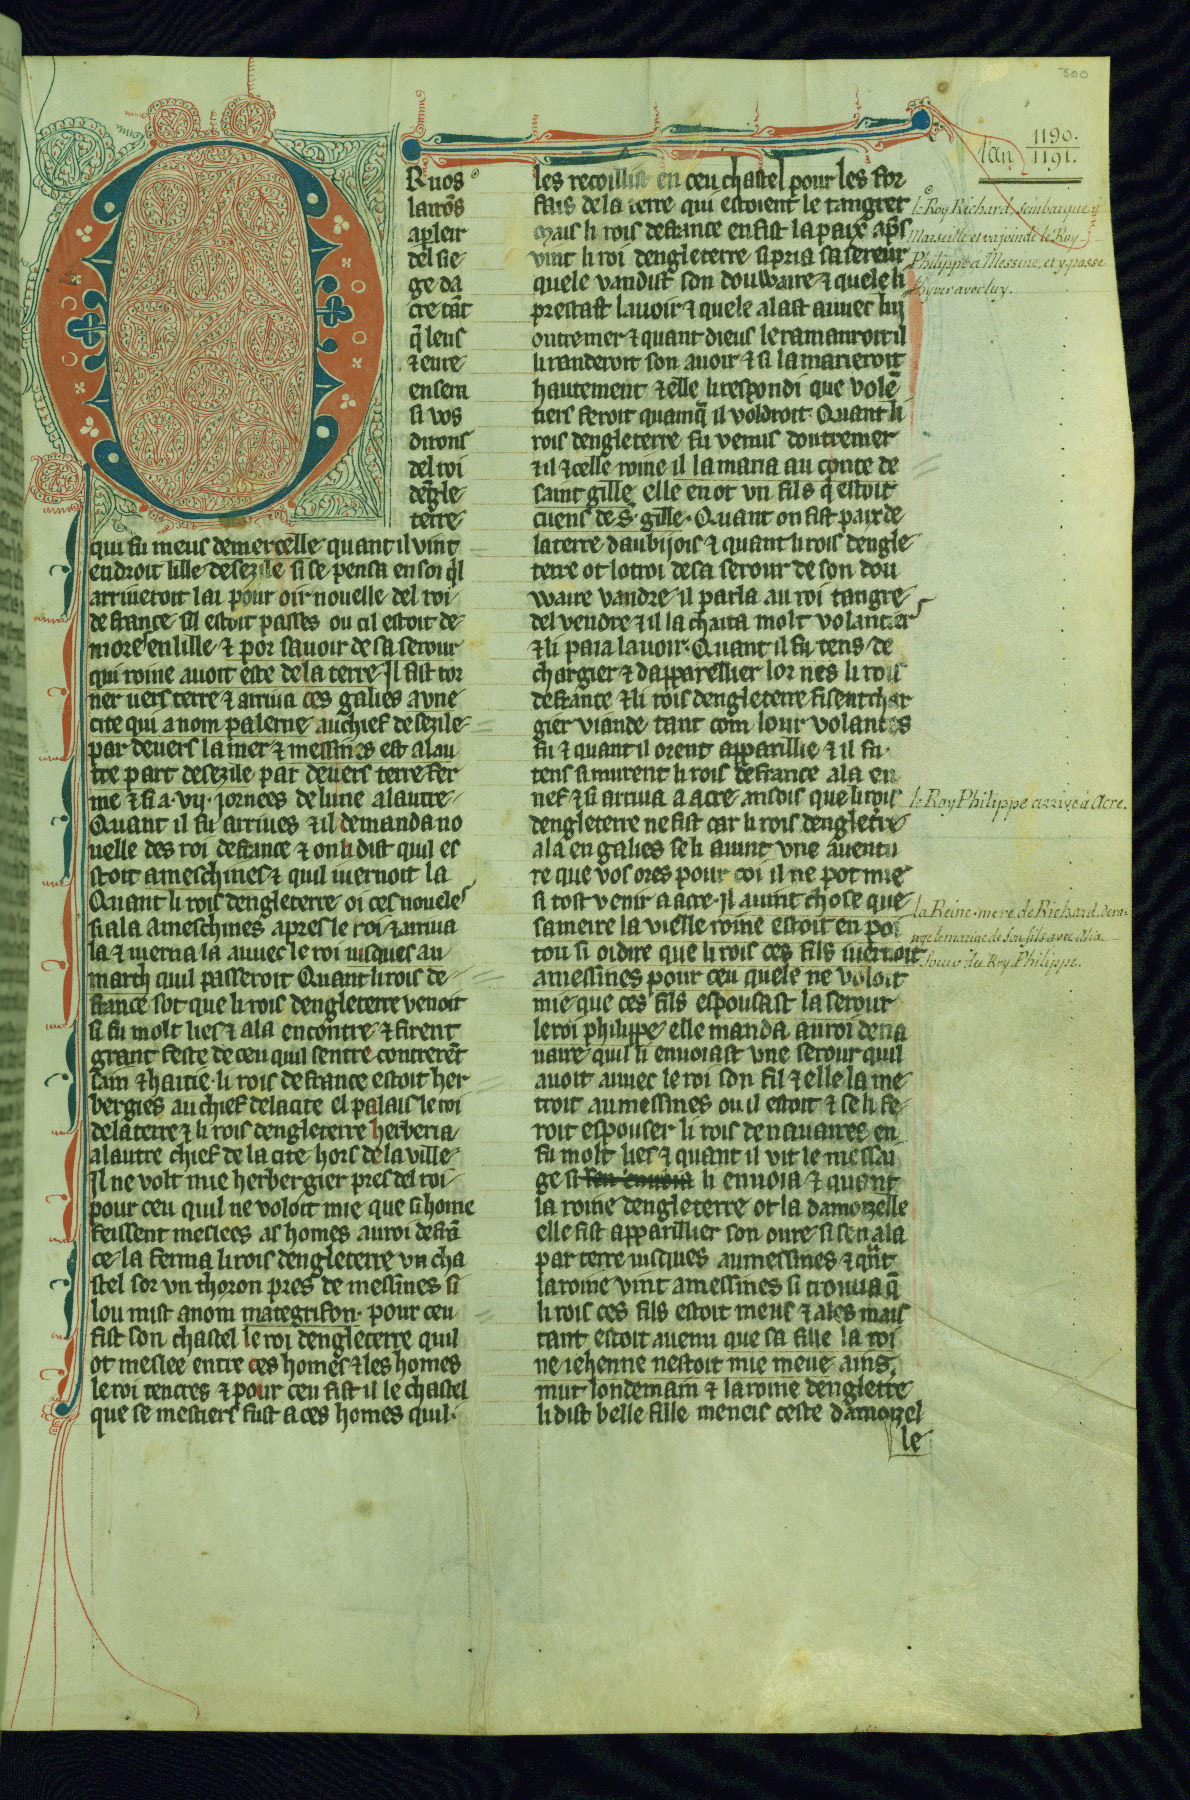 300
lan 1190. 1191.
O
R uos
lairōs
a p̱leir
del sie-
ge da
cre tāt
q̄ leus
⁊ eure
ensem
si vos
dirons
del roi
dēgle-
terre-
qui fu meus de mercelle quant il vint
endroit lille de sezile si se pensa en soi ql
arriueroit lai pour oir nouelle del roi
de france sil estoit passes ou cil estoit de-
more en lille ⁊ por sauoir de sa serour
qui roine auoit este de la terre Il fist tor
ner uers terre ⁊ arriua ces galies a vne
cite qui a nom palerne au chief de sezile-
par deuers la mer ⁊ messines est a lau
tre part de sezile par deuers terre fer
me ⁊ si a .vij. jornees de lune a lautre-
Quant il fu arriues ⁊ il demanda no
uelle des roi de france ⁊ on li dist quil es
stoit a meschines ⁊ quil iuernoit la
Quant li rois dengleterre oi ces noueles
si ala a meschines apres le roi ⁊ arriua
la ⁊ iuerna la auuec le roi iusques au
march quil passeroit Quant li rois de-
france sot que li rois dengleterre venoit
si fu molt lies ⁊ ala encontre ⁊ firent
grant feste de ceu quil sentre contrerēt
sain ⁊ haitie li rois de france estoit her
bergies au chief de la cite el palais le roi
de la terre ⁊ li rois dengleterre herberia
a lautre chief de la cite hors de la ville-
Il ne volt mie herbergier pres del roi
pour ceu quil ne voloit mie que si home
feissent meslees as homes au roi de frā
ce la ferma li rois dengleterre vn cha
stel sor vn thoron pres de messines si
lou mist a nom mategrifon. pour ceu
fist son chastel le roi dengleterre quil
ot meslee entre ces homes ⁊ les homes
le roi tencres ⁊ pour ceu fist il le chastel
que se mestiers fust a ces homes quil
les recoillist en ceu chastel pour les for
fais de la terre qui estoient le tangret
Mais li rois de france en fist la paix ap̱s
vint li roi dengleterre si pria sa sereur
quele vandist son douwaire ⁊ quele li
prestast lauoir ⁊ quele alast auuec luj
outremer ⁊ quant dieus le ramanroit il
li randeroit son auoir ⁊ si la marieroit
hautement ⁊ elle li respondi que volē
tiers feroit quamq̄ il voldroit Quant li
rois dengleterre fu venus doutremer
⁊ il ⁊ celle roine il la maria au conte de
saint gille elle en ot vn fils q̄ estoit
cuens de .S. gille. Quant on fist paix de
la terre daubijois ⁊ quant li rois dengle
terre ot lotroi de sa serour de son dou
waire vandre il parla au roi tangre
del vendre ⁊ il la chaita molt volantier
⁊ li paia lauoir. Quant il fu tens de
chargier ⁊ dapparellier lor nes li rois
de france ⁊ li rois dengleterre fisent char
gier viande tant com lour volantes
fu ⁊ quant il orent apparillie ⁊ il fu
tens si murent li rois de france ala en
nef ⁊ si arriua a acre ansois que li rois
dengleterre ne fist car li rois dengleterre
ala en galies se li auint vne auentu
re que vos ores pour coi il ne pot mie
si tost venir a acre. Il auint chose que
sa meire la vielle roine estoit en poi
tou si oidire que li rois ces fils iuernoit
a messines pour ceu quele ne voloit
mie que ces fils espousast la serour
le roi philippe elle manda au roi de na
uaire quil li enuoiast vne serour quil
auoit auuec le roi son fil ⁊ elle la me
troit au messines ou il estoit ⁊ se li fe-
roit espouser li rois de nauarre en
fu molt lies ⁊ quant il vit le messai
ge si sen enuoia li enuoia ⁊ quant
la roine dengleterre ot la damoizelle
elle fist apparillier son oure si sen ala
par terre iusques au messines ⁊ qn̄t
la roine vint a messines si trouua q̄
li rois ces fils estoit meus ⁊ ales mais
tant estoit auenu que sa fille la roi
ne iehenne nestoit mie meue ains
mut londemain ⁊ la roine dengleterre
li dist belle fille meneis ceste damoizel
le
le Roy Richard sembarque a
Marseille et va joindre le Roy
Philippe a Messine, et y passe
lhyver avec luy.
le Roy Philippe arrive a Acre.
La Reine mere de Richard
le mariage de son fils avec Alix
soeur du Roy Philippe.